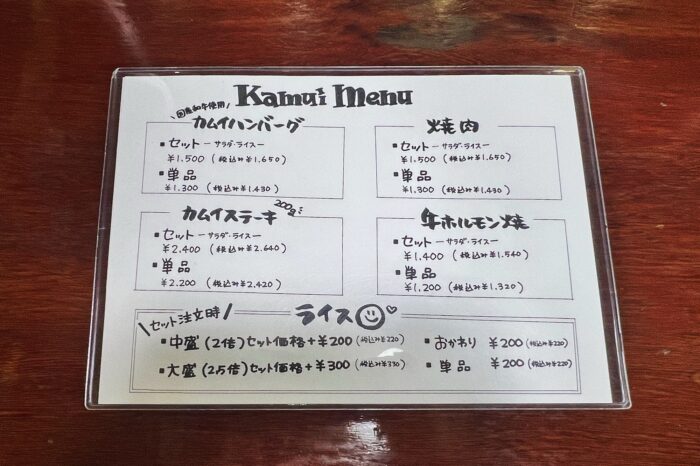 Kamui Menu
国産和牛使用
カムイハンバーグ
▪セット ーサラダ・ライスー
¥1.500 (税込み¥1.650)
▪単品
¥1.300 (税込み¥1.430)
焼肉
▪セット ーサラダ・ライスー
¥1.500 (税込み¥1.650)
▪単品
¥1.300 (税込み¥1.430)
カムイステーキ 200g
▪セット ーサラダ・ライスー
¥2.400 (税込み¥2.640)
▪単品
¥2.200 (税込み¥2.420)
牛ホルモン焼
▪セット ーサラダ・ライスー
¥1.400 (税込み¥1.540)
▪単品
¥1.200 (税込み¥1.320)
セット注文時
ライス
▪中盛(2倍)セット価格+¥200(税込み¥220)
▪大盛(2.5倍)セット価格+¥300(税込み¥330)
▪おかわり ¥200(税込み¥220)
▪単品 ¥200(税込み¥220)